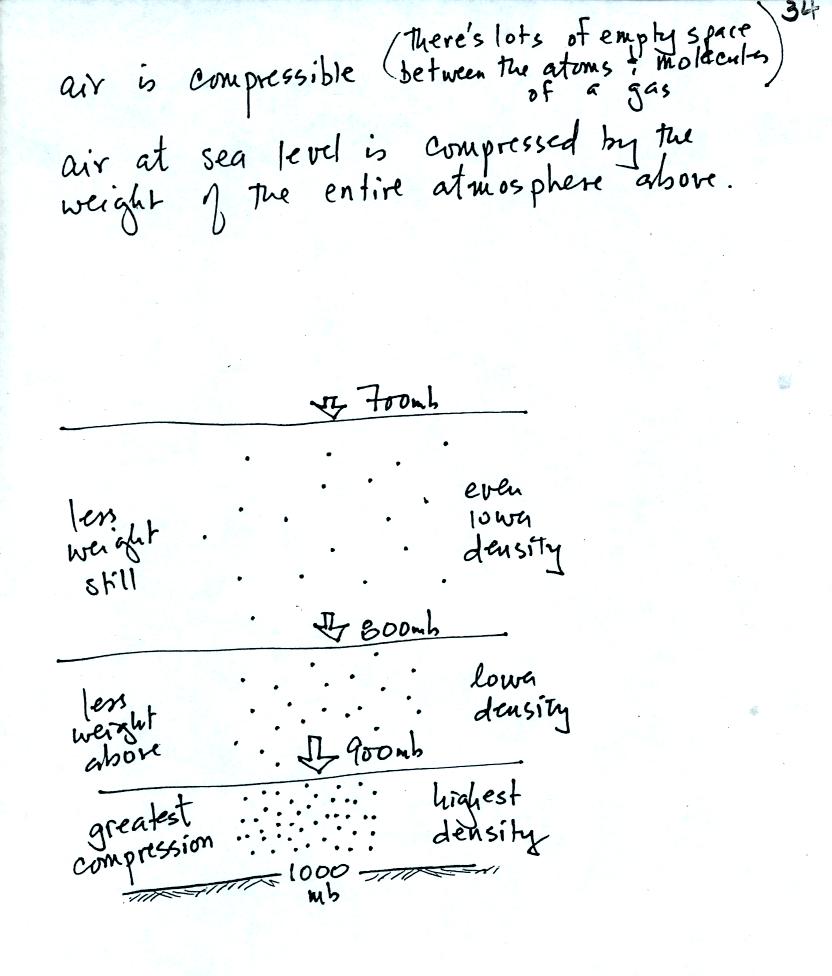 34
air is compressible (there's lots of empty space
between the atoms & molecules
of a gas)
air at sea level is compressed by the
weight of the entire atmosphere above.
700mb
less
weight
still
even
lower
density
800mb
less
weight
above
lower
density
900mb
greatest
compression
highest
density
1000
mb